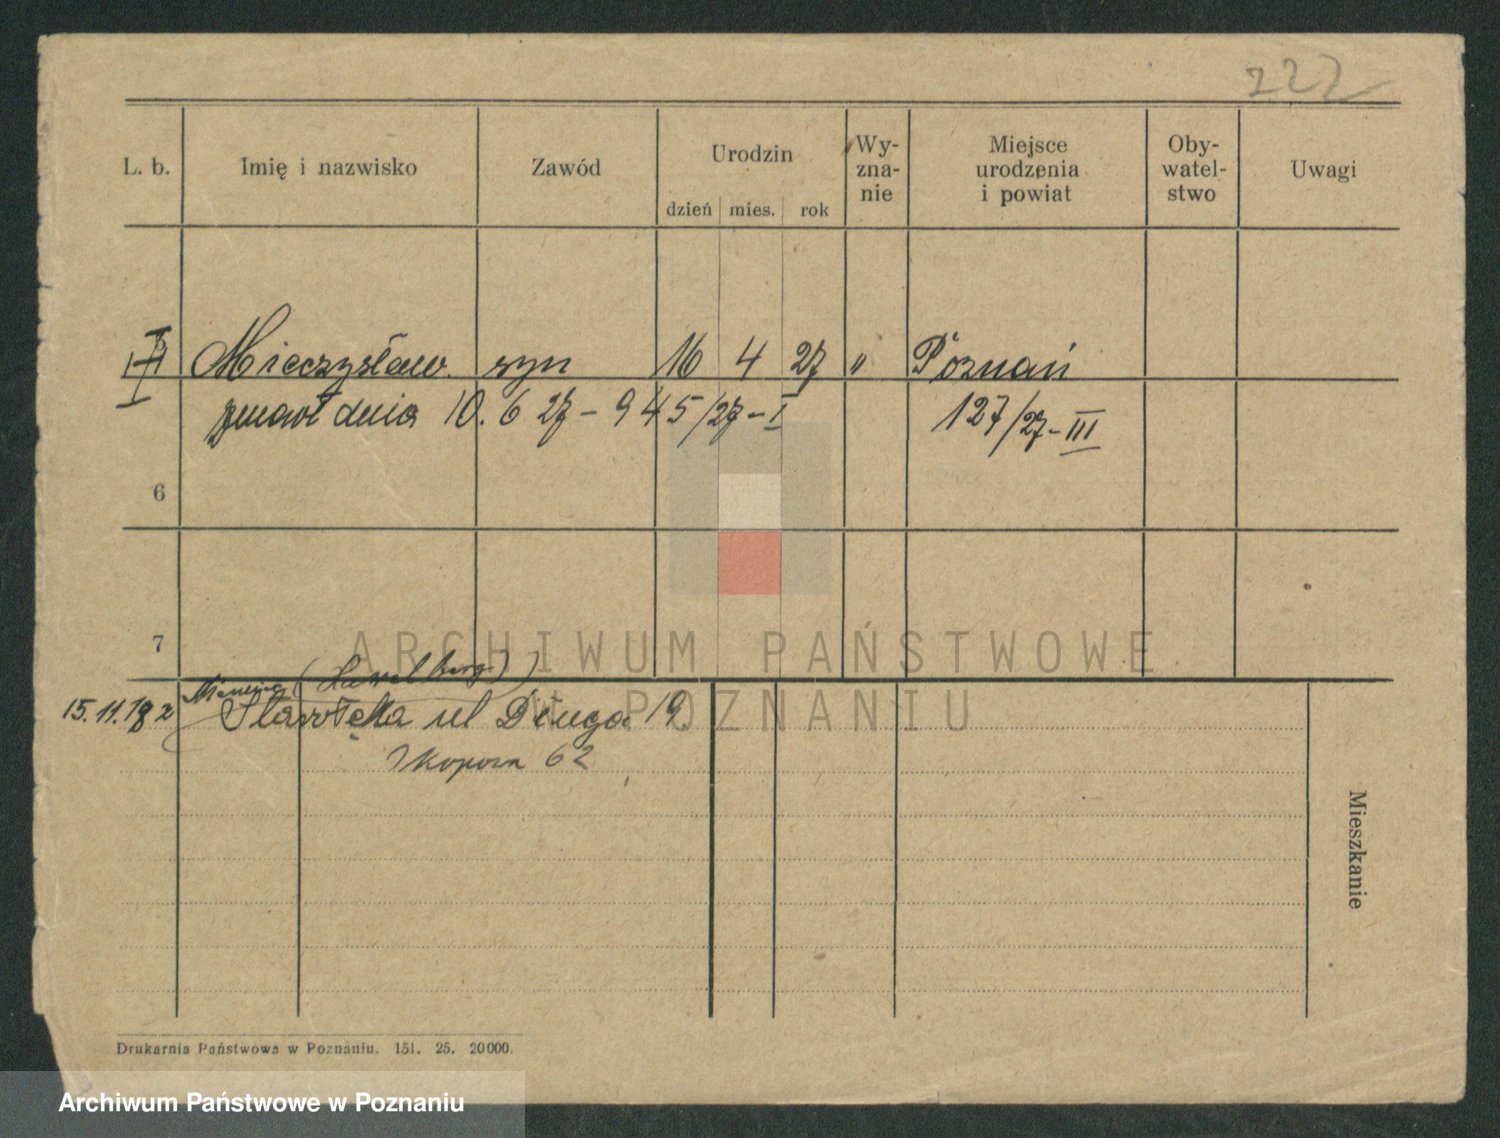 222
L. b. Imię i nazwisko Zawód Urodzin Wy-zna-nie Miejsce urodzenia i powiat Oby-watel-stwo Uwagi
dzień mies. rok
Mieczysław syn 16 4 27 " Poznań
zmarł dnia 10. 6 27 - 945/27 - I 127/27 - III
6
7
ARCHIWUM PAŃSTWOWE
W POZNANIU
15.11.192
Starołęka ul Długa 19.
62
Mieszkanie
Drukarnia Państwowa w Poznaniu. 151. 25. 20000.
Archiwum Państwowe w Poznaniu